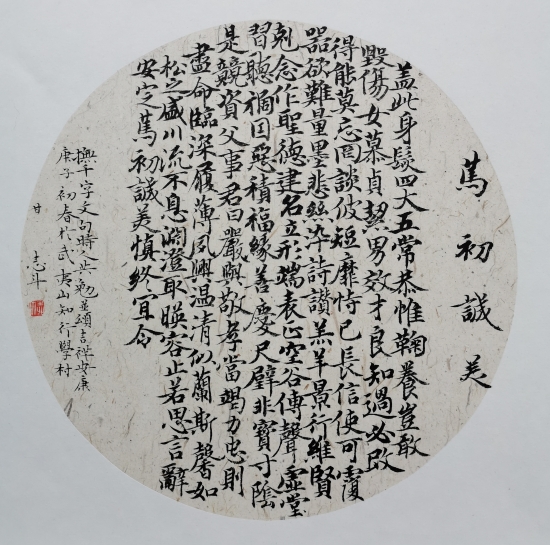 篤初誠美
蓋此身髮四大五常恭惟鞠養豈敢
毀傷女慕貞絜男效才良知過必改
得能莫忘罔談彼短靡恃己長信使可覆
器欲難量墨悲絲染詩讚羔羊景行維賢
剋念作聖德建名立形端表正空谷傳聲虛堂
習聽禍因惡積福緣善慶尺璧非寶寸陰
是競資父事君曰嚴與敬孝當竭力忠則
盡命臨深履薄夙興溫清似蘭斯馨如
松之盛川流不息淵澄取暎容止若思言辭
安定篤初誠美慎終宜令
撫千字文句時人共勉並頌吉祥安康
庚子初春於武夷山知行學村
甘志斗